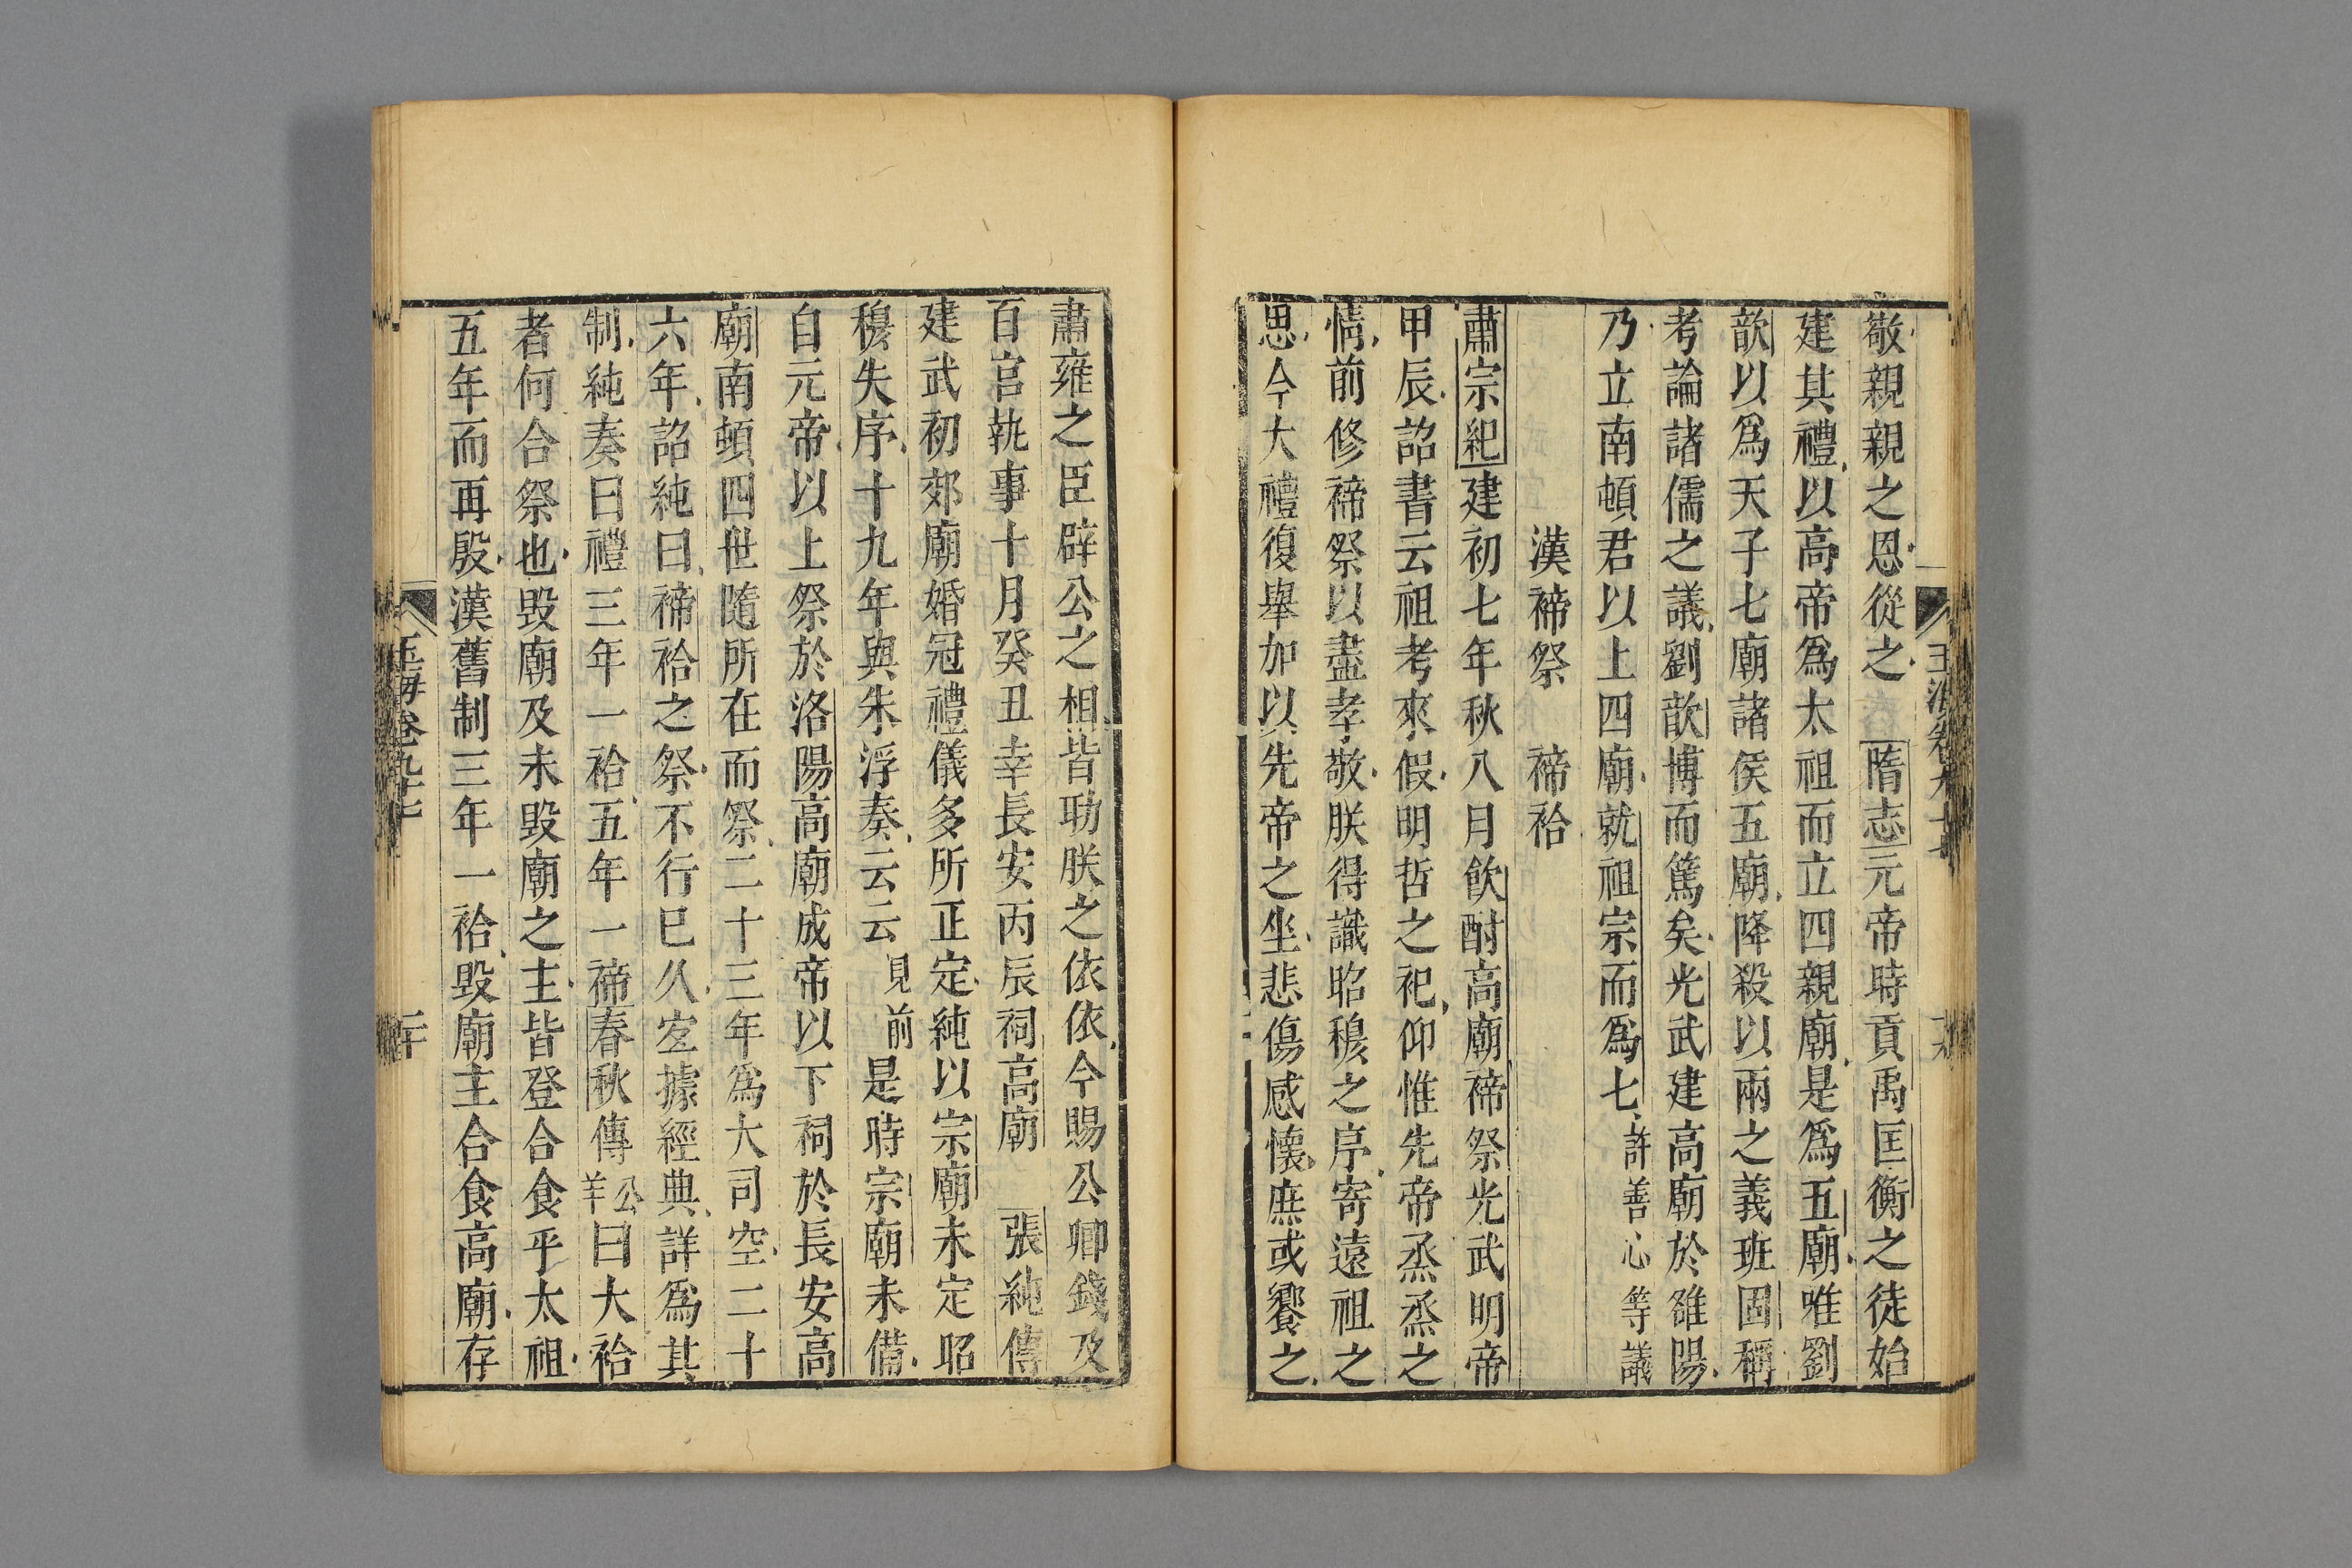 敬親親之恩從之　隋志元帝時貢禹匡衡之徒始
建其禮以高帝爲太祖而立四親廟是爲五廟唯劉
歆以爲天子七廟諸侯五廟降殺以兩之義班固稱
考論諸儒之議劉歆博而篤矣光武建高廟於雒陽
乃立南頓君以上四廟就祖宗而爲七許善心等議
漢禘祭　禘祫
肅宗紀建初七年秋八月飮酎高廟禘祭光武明帝
甲辰詔書云祖考來假明哲之祀仰惟先帝烝烝之
情前修禘祭以盡孝敬朕得識昭穆之序寄遠祖之
思今大禮復舉加以先帝之坐悲傷感懷庶或饗之
肅雍之臣辟公之相皆助朕之依依今賜公卿錢及
百官執事十月癸丑幸長安丙辰祠高廟　張純傳
建武初郊廟婚冠禮儀多所正定純以宗廟未定昭
穆失序十九年與朱浮奏云云見前是時宗廟未備
自元帝以上祭於洛陽高廟成帝以下祠於長安高
廟南頓四世隨所在而祭二十三年爲大司空二十
六年詔純曰禘祫之祭不行已久宜據經典詳爲其
制純奏曰禮三年一祫五年一禘春秋傳公羊曰大祫
者何合祭也毀廟及未毀廟之主皆登合食乎太祖
五年而再殷漢舊制三年一祫毀廟主合食高廟存
玉海卷九十七
二十